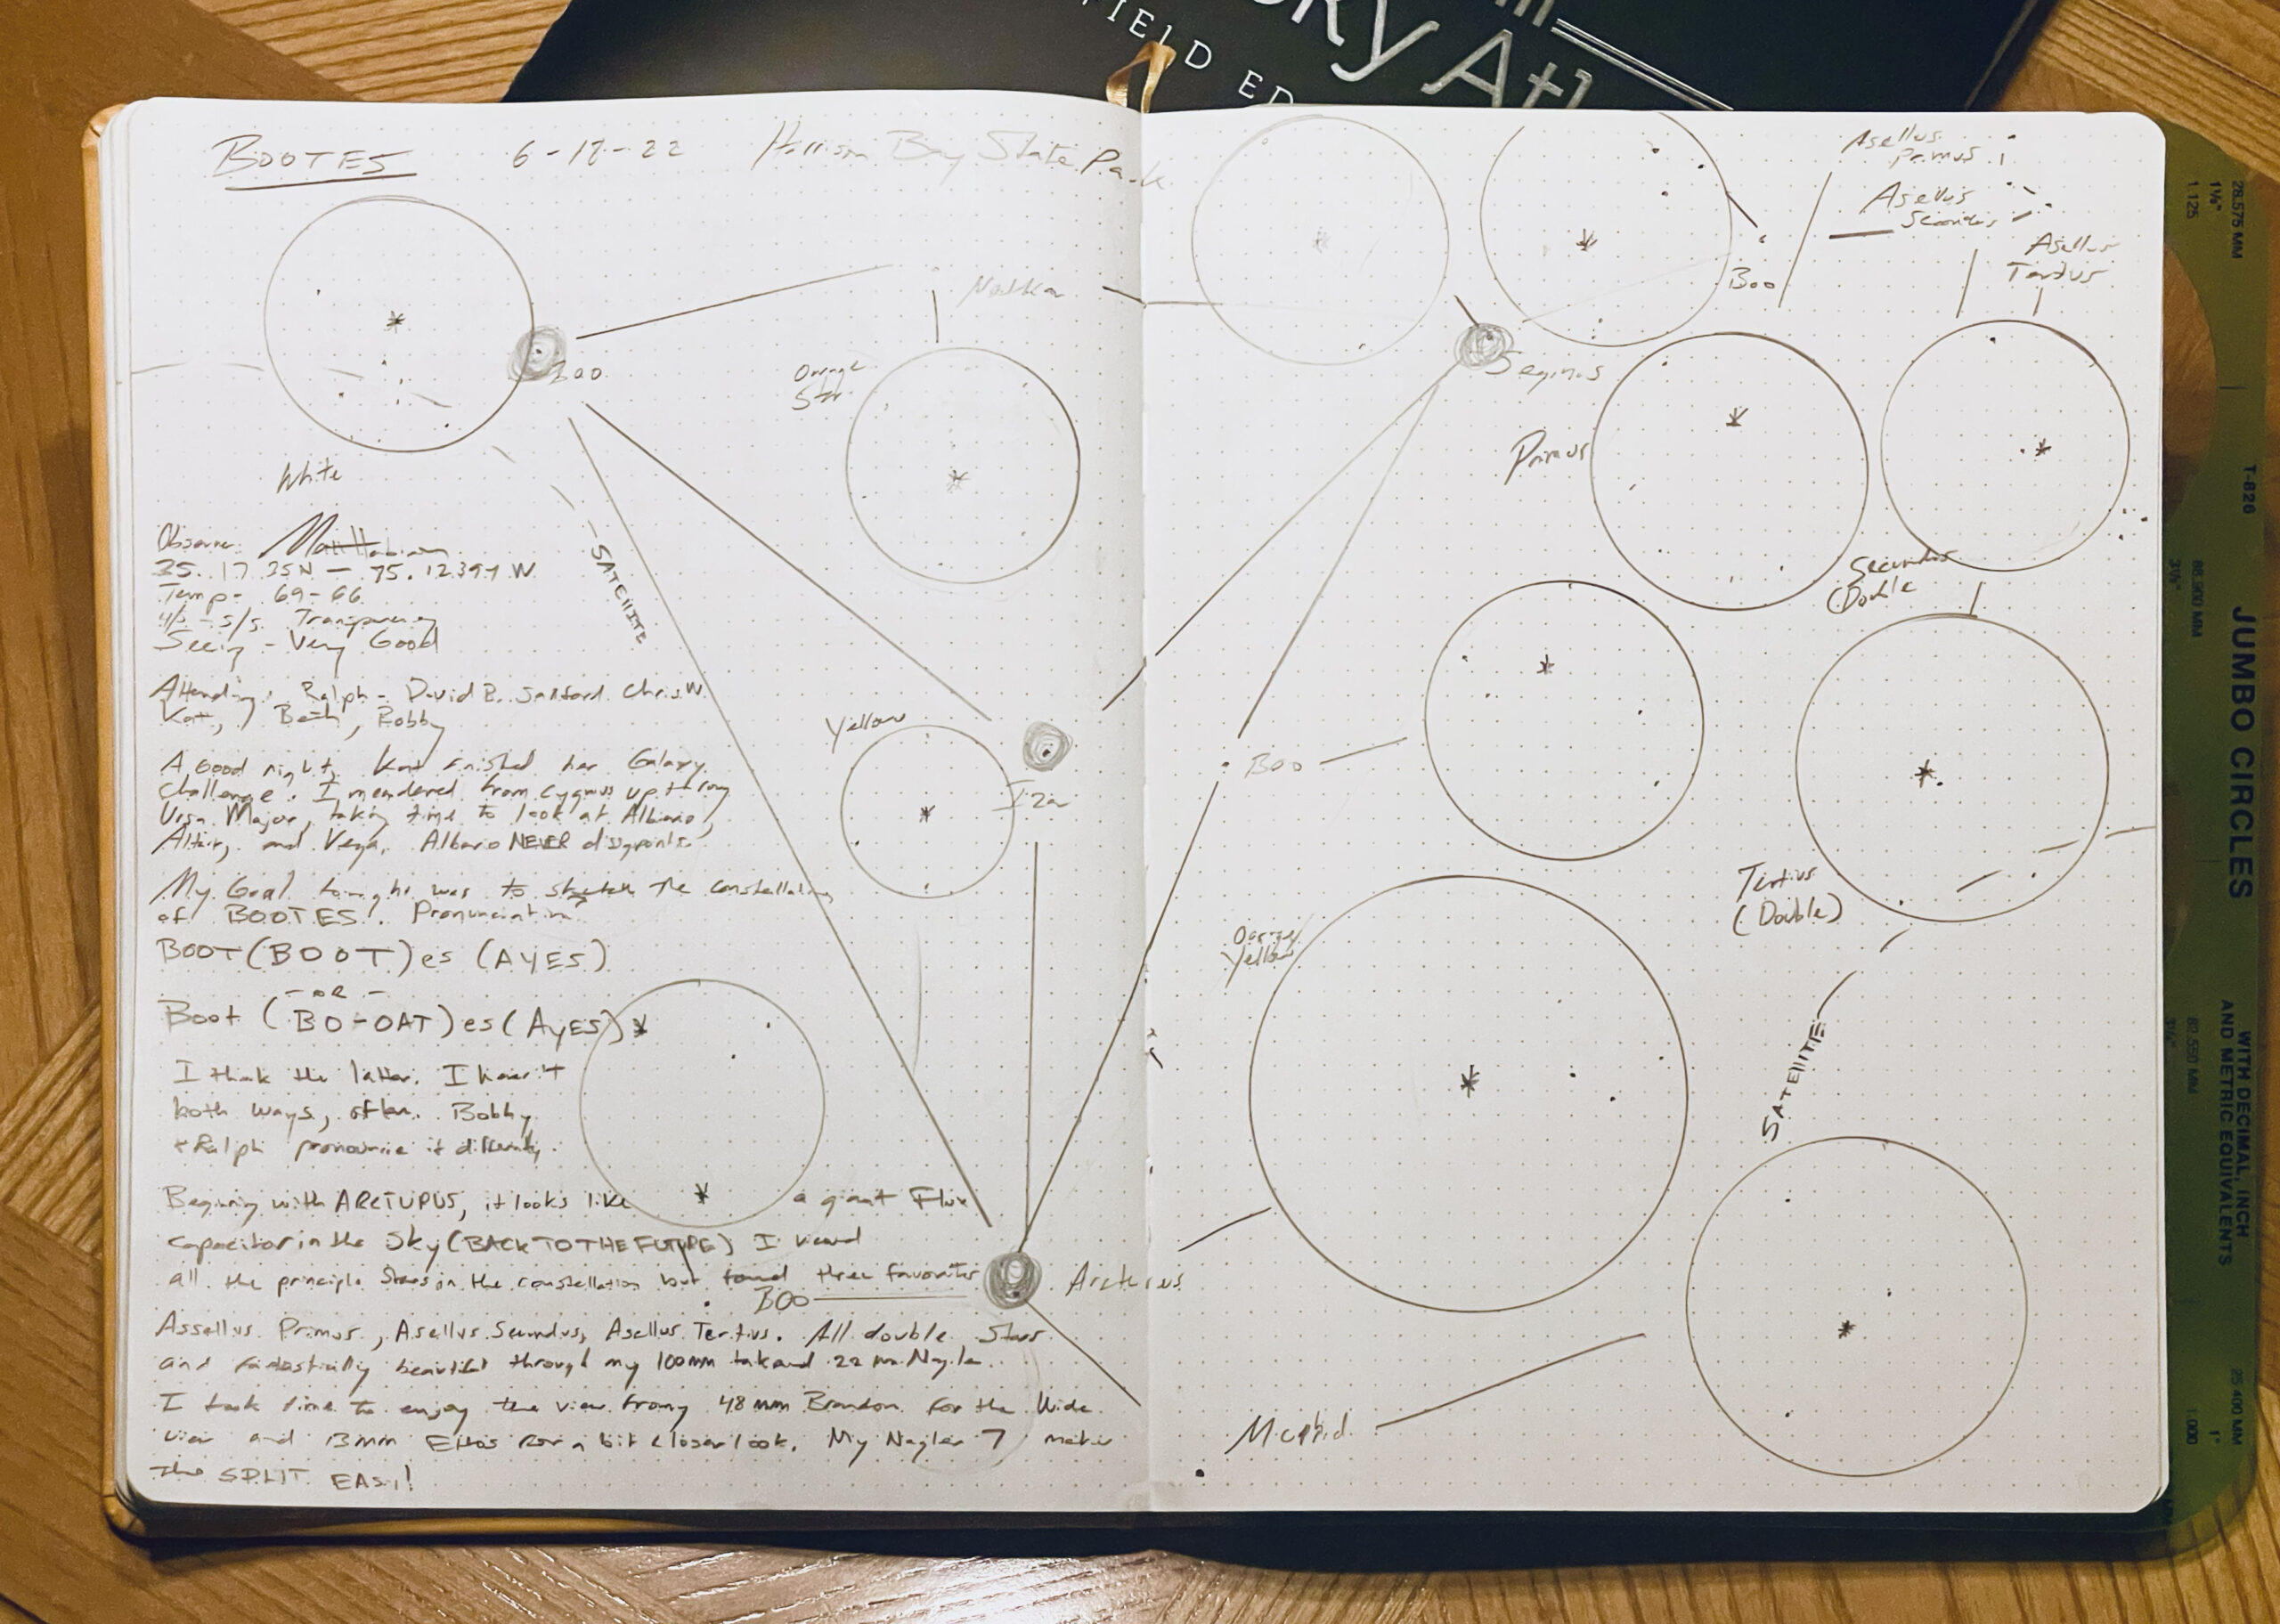 SKY Atl
FIELD ED
BOOTES 6-17-22 Harrison Bay State Park
Boo
Nekkar
Orange
Star
White
Observer: Matt
35. 17 35N - 75. 12397 W
Temp- 69-66
4/5 - 5/5 Transparency
Seeing - Very Good
SATEllITE
Attending: Ralph - David B. Sanford Chris W.
Kat, Beth, Bobby
A Good night, Kat finished her Galaxy
challenge. I meandered from Cygnus up
Ursa Major, taking time to look at Albiero,
Altair, and Vega. Albario NEVER disappoints.
My Goal tonight was to sketch the constellation
of BOOTES. Pronunciation?
BOOT (BOOT) es (AYES)
- OR -
Boot (BO-OAT) es (AyES)
I think the latter. I hear it
both ways, often. Bobby
+ Ralph pronounce it differently.
Beginning with ARCTURUS, it looks like a giant Flux
capacitor in the Sky (BACK TO THE FUTURE) I viewed
all the principle Stars in the constellation but found three favorites
Boo
Assellus Primus, Asellus Secundus, Asellus Tertius. All double Stars
and fantastically beautiful through my 100mm tak and 22 mm Nagler.
I took time to enjoy the view from my 48mm Brandon for the Wide
view and 13mm Ethos for a bit closer look. My Nagler 7 makes
the SPLIT EASY!
Yellow
Izar
Arcturus
Asellus
Primus
Asellus
Secundus
Asellus
Tertius
Boo
Seginus
Primus
Secundus
(Double
Boo
Tertius
(Double)
Orange/
Yellow
SATEllITE
Muphrid
28.575 MM
1⅛"
1.125
T-826
JUMBO CIRCLES
WITH DECIMAL, INCH
AND METRIC EQUIVALENTS
82.550 MM
25.400 MM
1"
1.000